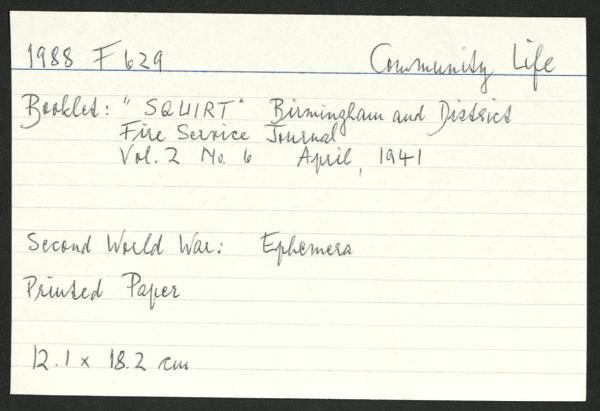 1988 F 629 Community Life
Booklet: "SQUIRT" Birmingham and District
Fire Service Journal
Vol. 2 No. 6 April, 1941
Second World War: Ephemera
Printed Paper
12.1 x 18.2 cm